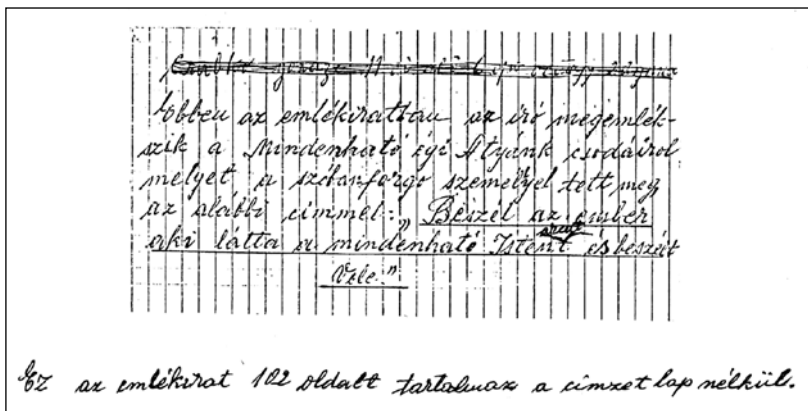 Ebben az emlékiratban az iró megemlék-
szik a Mindenható égi Atyánk csodáirol
melyet a szóbanforgo személyel tett meg
az alábbi cimmel: „Beszél az ember
aki látta a mindenható Istent és beszélt
Vele."
Ez az emlékirat 102 oldalt tartalmaz a cimzet lap nélkül.